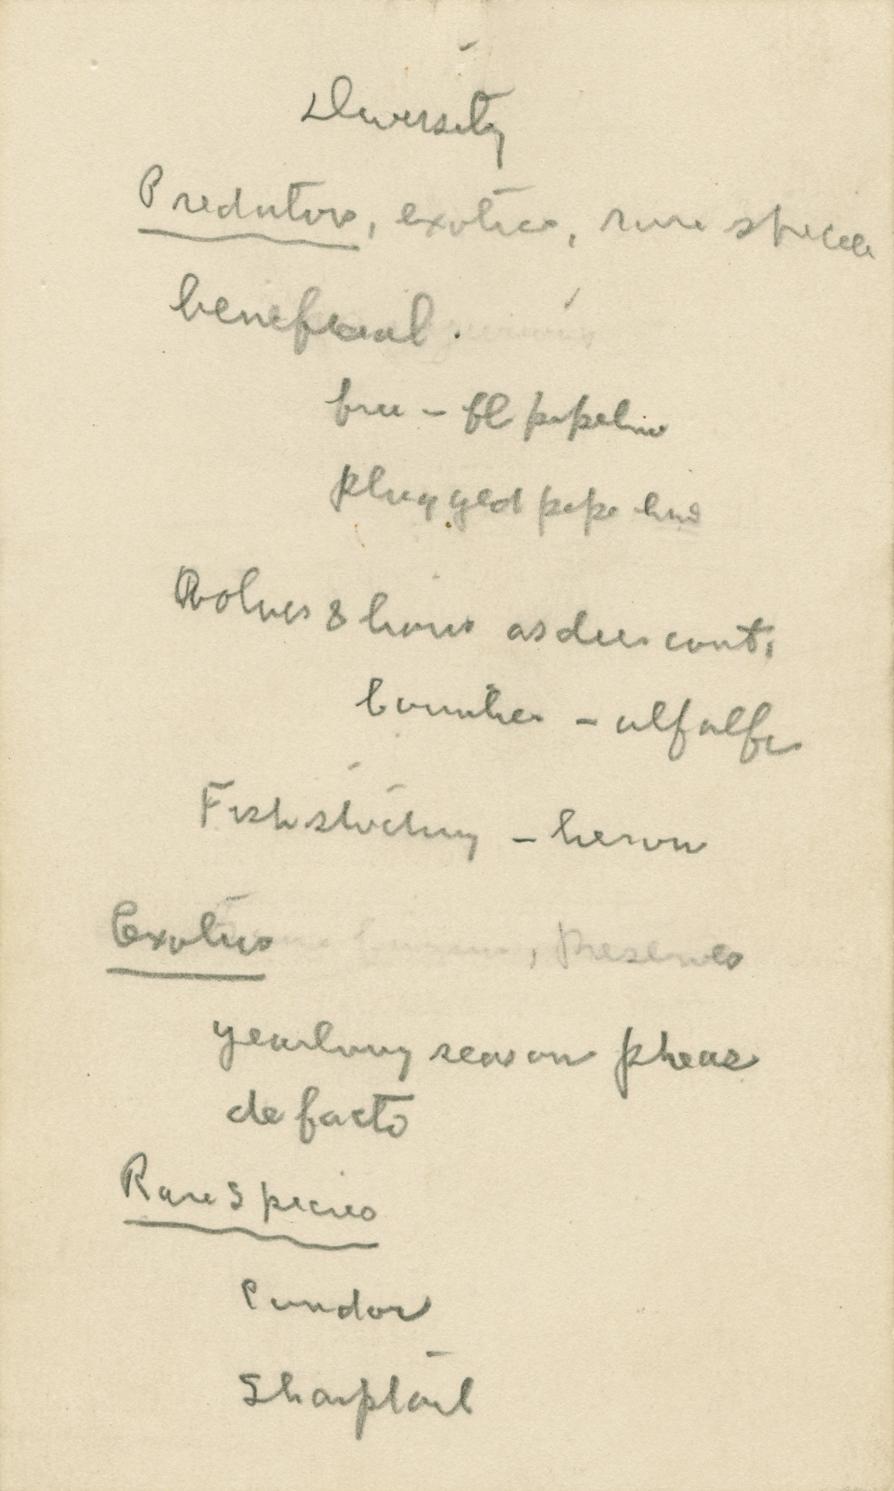 Diversity
Predators, exotics, rare species
beneficial.
free - fl pipeline
plugged pipe line
Wolves & lions as deer cont.
Coyotes - alfalfa
Fish stocking - heron
Exotics , preserves
yearlong season pheas
de facto
Rare Species
Condor
Sharptail